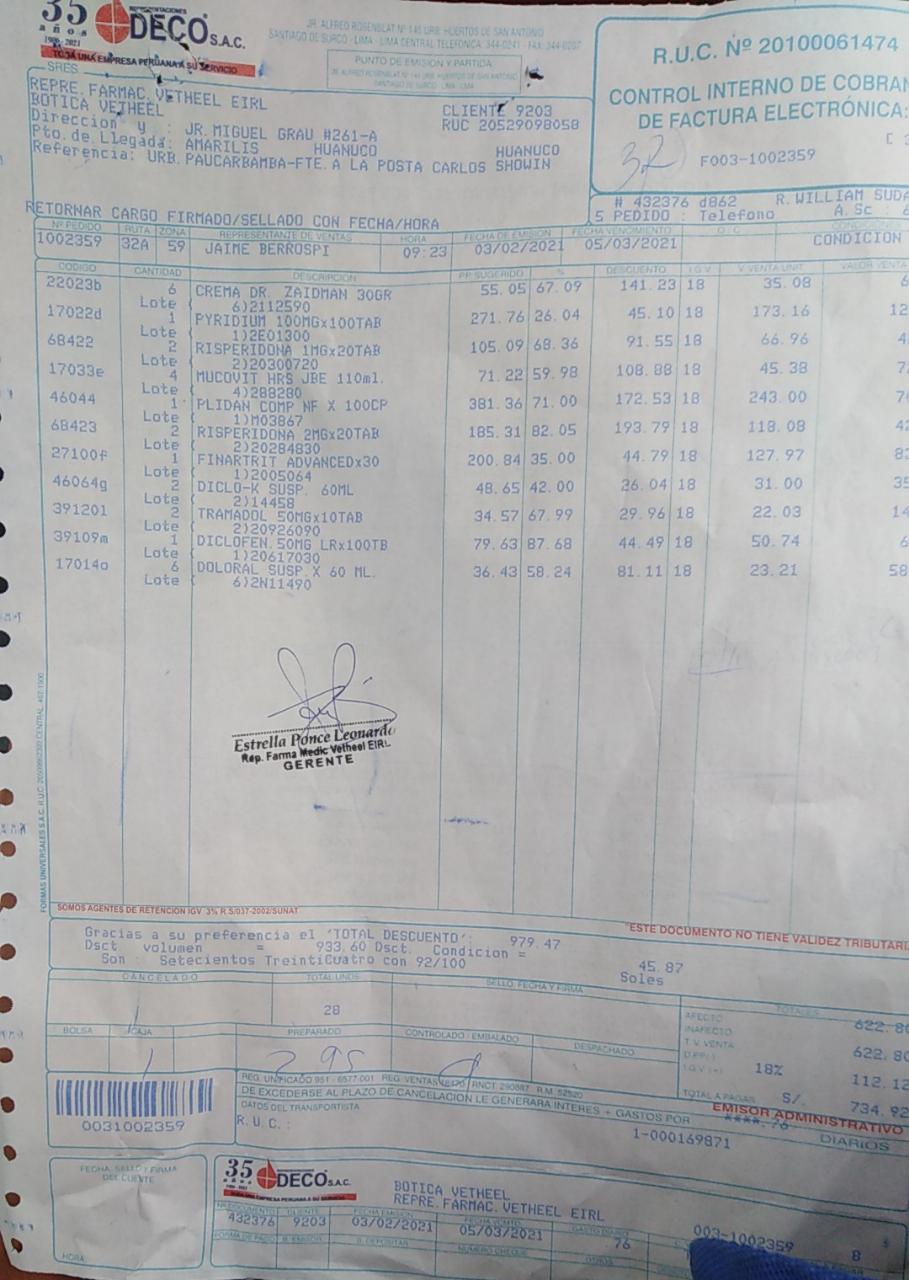 35
años
1986-2021
REPRESENTACIONES
DECO S.A.C.
TODA UNA EMPRESA PERUANA A SU SERVICIO
JR. ALFREDO ROSENBLAT Nº 145 URB. HUERTOS DE SAN ANTONIO
SANTIAGO DE SURCO - LIMA - LIMA CENTRAL TELEFONICA: 344-0241 - FAX: 344-0207
PUNTO DE EMISIÓN Y PARTIDA
JR. ALFREDO ROSENBLAT Nº 145 URB. HUERTOS DE SAN ANTONIO
SANTIAGO DE SURCO - LIMA - LIMA
R.U.C. Nº 20100061474
CONTROL INTERNO DE COBRAN
DE FACTURA ELECTRÓNICA:
F003-1002359
SRES
REPRE. FARMAC. VETHEEL EIRL
BOTICA VETHEEL
CLIENTE 9203
RUC 20529098058
Direccion y : JR. MIGUEL GRAU #261-A
Pto. de Llegada: AMARILIS HUANUCO HUANUCO
Referencia: URB. PAUCARBAMBA-FTE. A LA POSTA CARLOS SHOWIN
# 432376 d862 R. WILLIAM SUDA
5 PEDIDO : Telefono A. Sc : 6
RETORNAR CARGO FIRMADO/SELLADO CON FECHA/HORA
Nº PEDIDO RUTA ZONA REPRESENTANTE DE VENTAS HORA FECHA DE EMISION FECHA VENCIMIENTO O/C CONDICIONES
1002359 32A 59 JAIME BERROSPI 09:23 03/02/2021 05/03/2021 CONDICION
CODIGO CANTIDAD DESCRIPCION PR. SUGERIDO % DESCUENTO I.G.V V. VENTA UNIT. VALOR VENTA
22023b 6 CREMA DR. ZAIDMAN 30GR 55.05 67.09 141.23 18 35.08 6
Lote ( 6)2112590
17022d 1 PYRIDIUM 100MGx100TAB 271.76 26.04 45.10 18 173.16 12
Lote ( 1)2E01300
68422 2 RISPERIDONA 1MGx20TAB 105.09 68.36 91.55 18 66.96 4
Lote ( 2)20300720
17033e 4 MUCOVIT HRS JBE 110ml. 71.22 59.98 108.88 18 45.38 7
Lote ( 4)288280
46044 1 PLIDAN COMP NF X 100CP 381.36 71.00 172.53 18 243.00 7
Lote ( 1)M03867
68423 2 RISPERIDONA 2MGx20TAB 185.31 82.05 193.79 18 118.08 42
Lote ( 2)20284830
27100f 1 FINARTRIT ADVANCEDx30 200.84 35.00 44.79 18 127.97 83
Lote ( 1)2005064
46064g 2 DICLO-K SUSP. 60ML 48.65 42.00 26.04 18 31.00 35
Lote ( 2)14458
391201 2 TRAMADOL 50MGx10TAB 34.57 67.99 29.96 18 22.03 14
Lote ( 2)20926090
39109m 1 DICLOFEN.50MG LRx100TB 79.63 87.68 44.49 18 50.74 6
Lote ( 1)20617030
17014o 6 DOLORAL SUSP.X 60 ML. 36.43 58.24 81.11 18 23.21 58
Lote ( 6)2N11490
Estrella Ponce Leonardo
Rep. Farma Medic Vetheel EIRL
GERENTE
SOMOS AGENTES DE RETENCION IGV 3% R.S/037-2002/SUNAT
"ESTE DOCUMENTO NO TIENE VALIDEZ TRIBUTARI
Gracias a su preferencia el 'TOTAL DESCUENTO': 979.47
Dsct volumen = 933.60 Dsct. Condicion = 45.87
Son : Setecientos TreintiCuatro con 92/100 Soles
CANCELADO TOTAL UNDS SELLO, FECHA Y FIRMA TOTALES
28
AFECTO 622.80
INAFECTO
T.V. VENTA 622.80
I.G.V (+) 18% 112.12
TOTAL A PAGAR S/. 734.92
BOLSA CAJA PREPARADO CONTROLADO / EMBALADO DESPACHADO
295
0031002359
REG. UNIFICADO 951 - 6577-001 REG. VENTAS 18170 RNCT. 290887 R.M. 52520
DE EXCEDERSE AL PLAZO DE CANCELACION LE GENERARA INTERES + GASTOS POR ****.76 DIARIOS
EMISOR ADMINISTRATIVO
DATOS DEL TRANSPORTISTA
R.U.C. :
1-000169871
FECHA, SELLO Y FIRMA
DEL CLIENTE
HORA:
35
años
DECO S.A.C.
TODA UNA EMPRESA PERUANA A SU SERVICIO
BOTICA VETHEEL
REPRE. FARMAC. VETHEEL EIRL
CLIENTE FECHA EMISION FECHA VENCTO GASTO DIARIO
432376 9203 03/02/2021 05/03/2021 76 003-1002359 8
FORMA DE PAGO B. EMISOR B. DEPOSITAR NUMERO CHEQUE